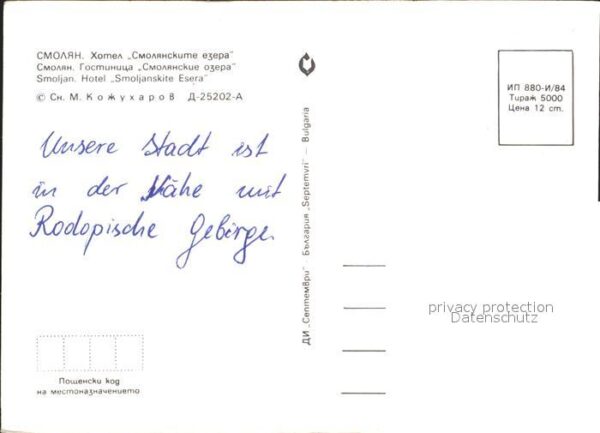 СМОЛЯН. Хотел „Смолянските езера"
Смолян. Гостиница „Смолянские озера"
Smoljan. Hotel „Smoljanskite Esera"
© Сн. М. Кожухаров Д-25202-А
Unsere Stadt ist
in der Nähe mit
Rodopische Gebirge.
Пощенски код
на местоназначението
ДИ „Септември" - България „Septemvri" - Bulgaria
ИП 880-И/84
Тираж 5000
Цена 12 ст.
privacy protection
Datenschutz